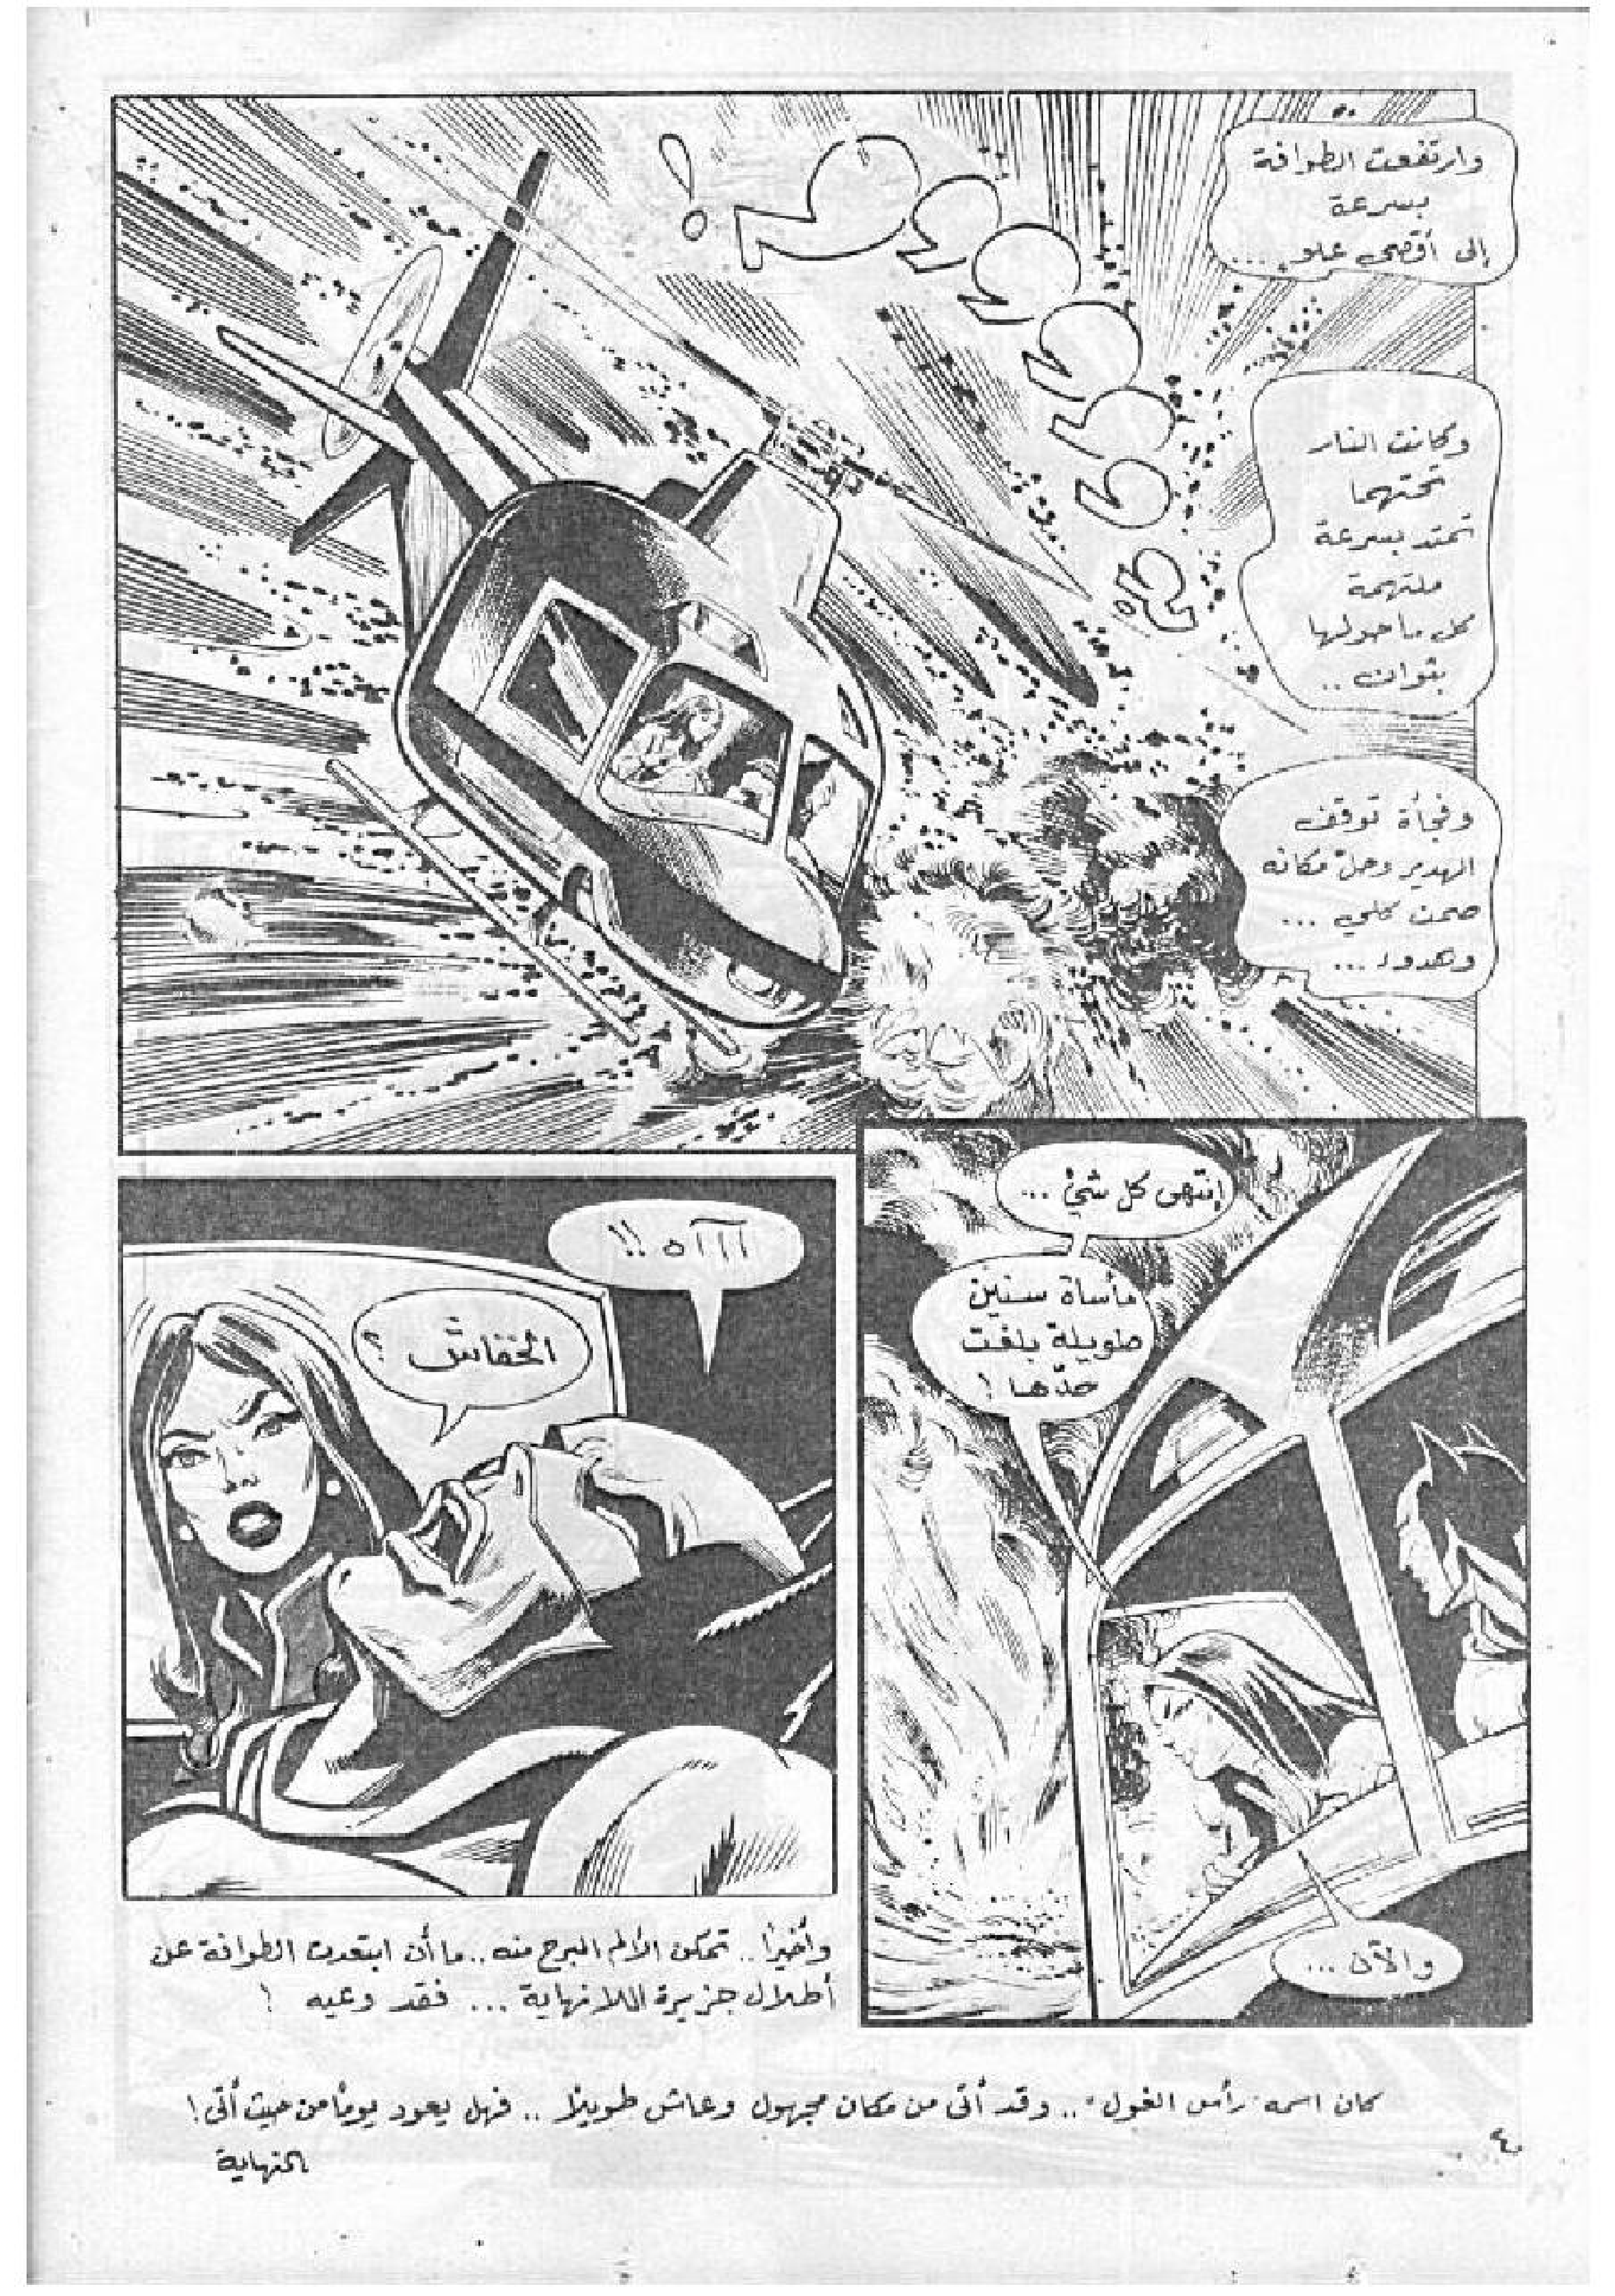 وارتفعت الطوافة
بسرعة
إلى أقصى علو ...
وكانت النار
تحتهما
تمتد بسرعة
ملتهمة
كل ما حولها
بثوان ..
وفجأة توقف
الهدير وحلّ مكانه
صمت كلي ...
وهدوء ...
إنتهى كل شيء ...
مأساة سنين
طويلة بلغت
حدّها !
والآن ...
آآآه !!!
الخفاش ؟
وأخيراً .. تمكن الألم المبرح منه .. ما أن ابتعدت الطوافة عن
أطلال جزيرة اللانهاية ... فقد وعيه !
كان اسمه "رأس الغول" .. وقد أتى من مكان مجهول وعاش طويلا .. فهل يعود يوماً من حيث أتى !
النهاية